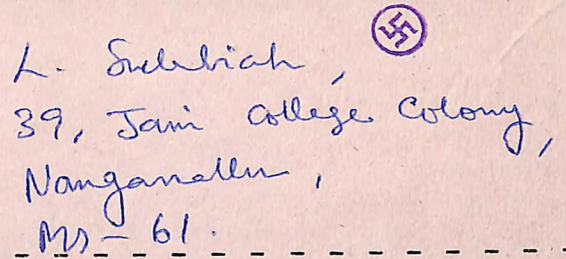 L. Subbiah,
39, Jain College Colony,
Nanganallur,
Ms - 61.